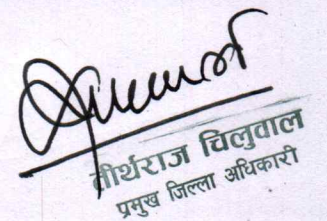 तीर्थराज चिलुवाल
प्रमुख जिल्ला अधिकारी